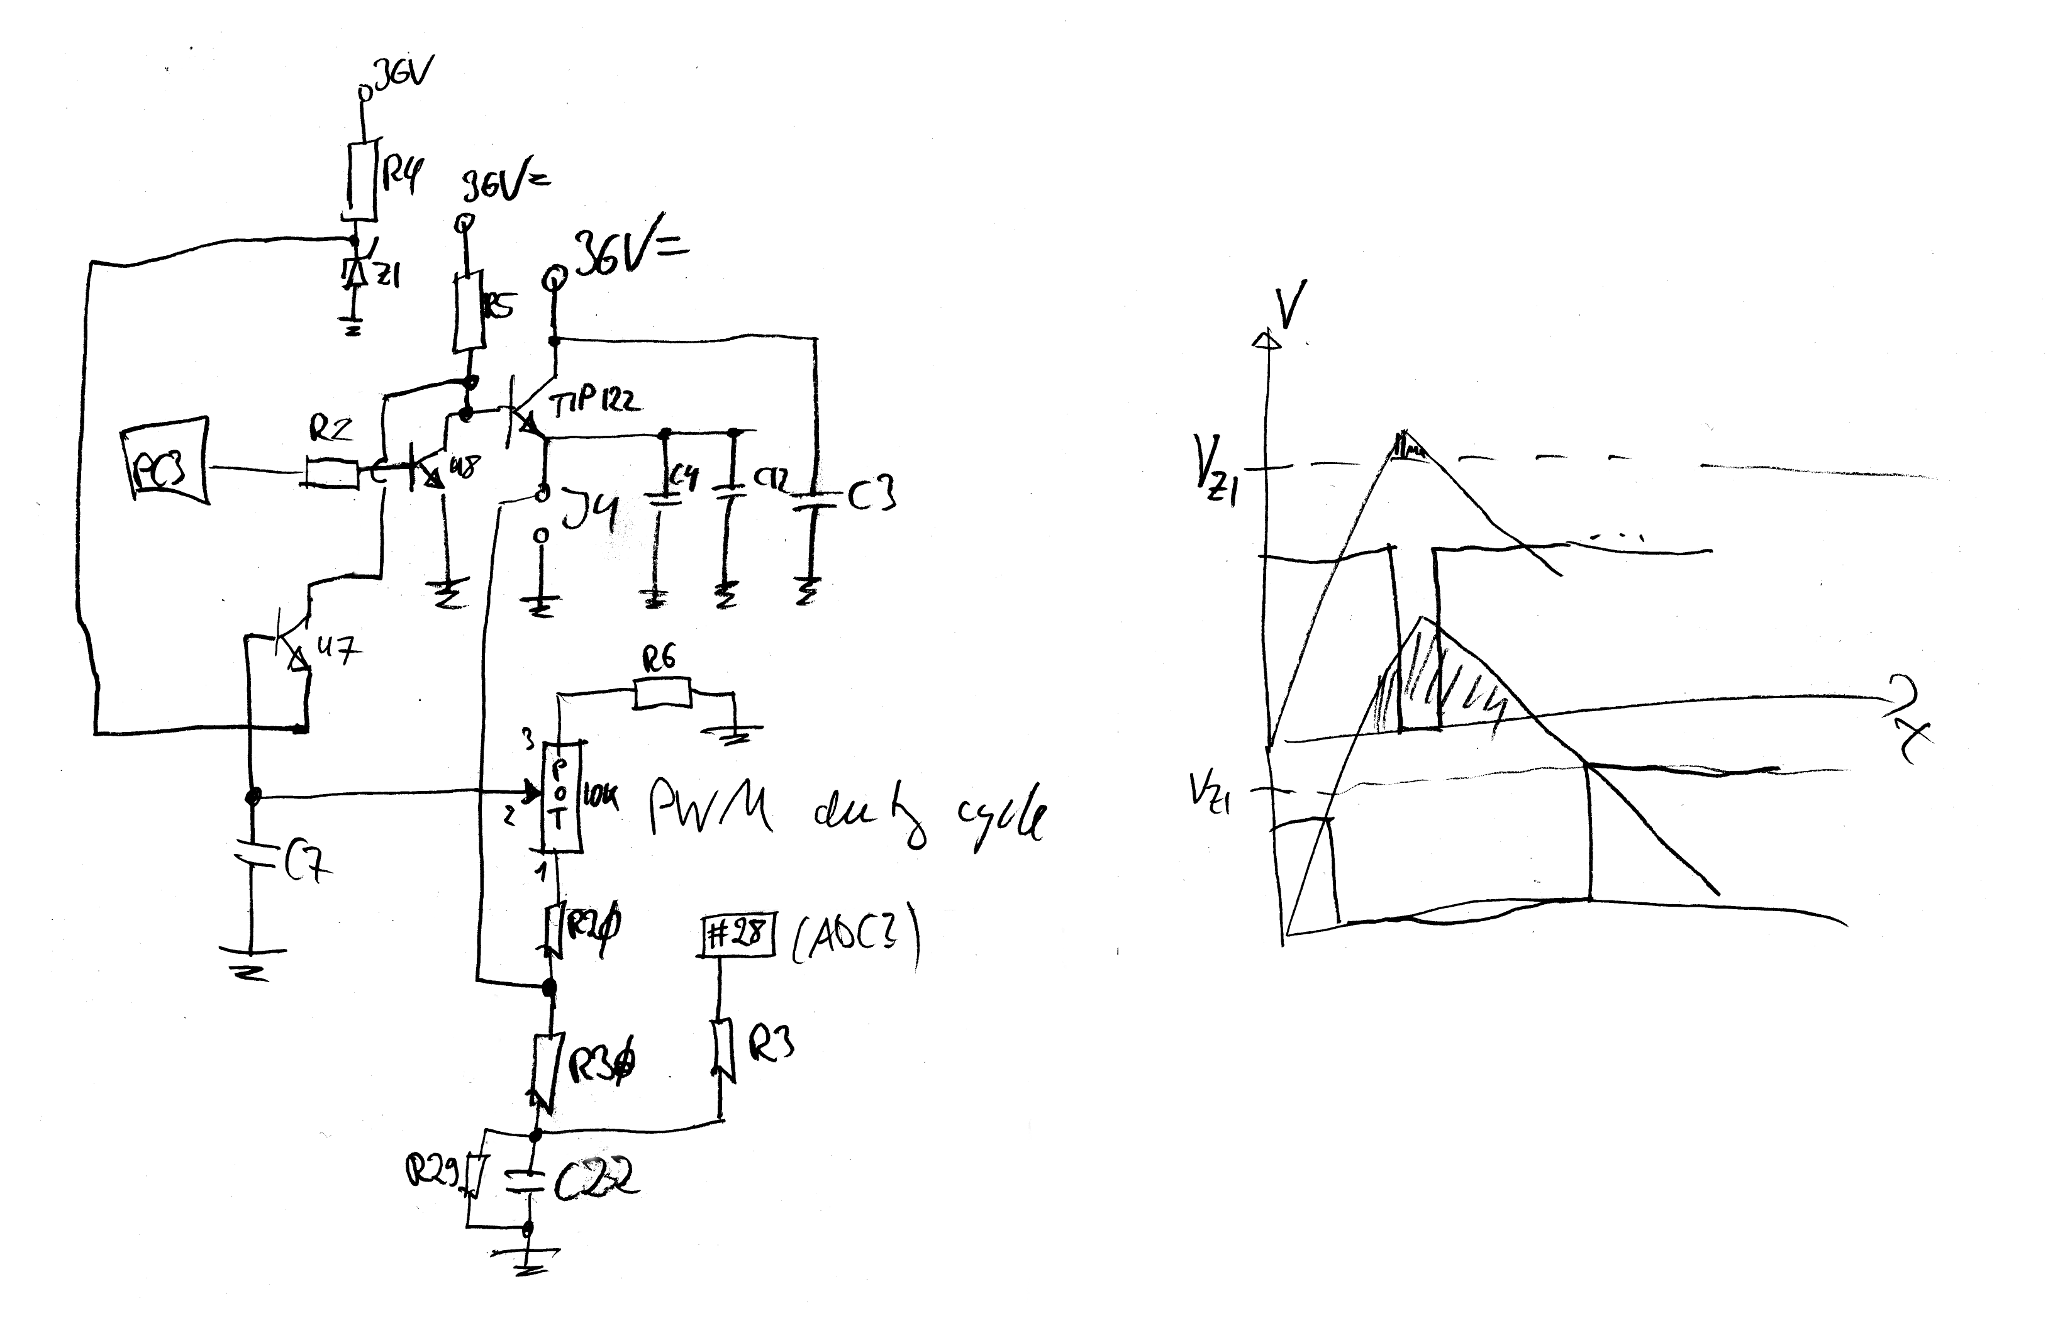 36V
R4
36V=
Z1
36V=
R5
TIP122
PC3
R2
U8
C4
C12
C3
J4
U7
R6
3
POT
10K
2
PWM duty cycle
1
C7
R20
#28 (ADC3)
R3
R30
R29
C22
V
VZ1
...
x
VZ1